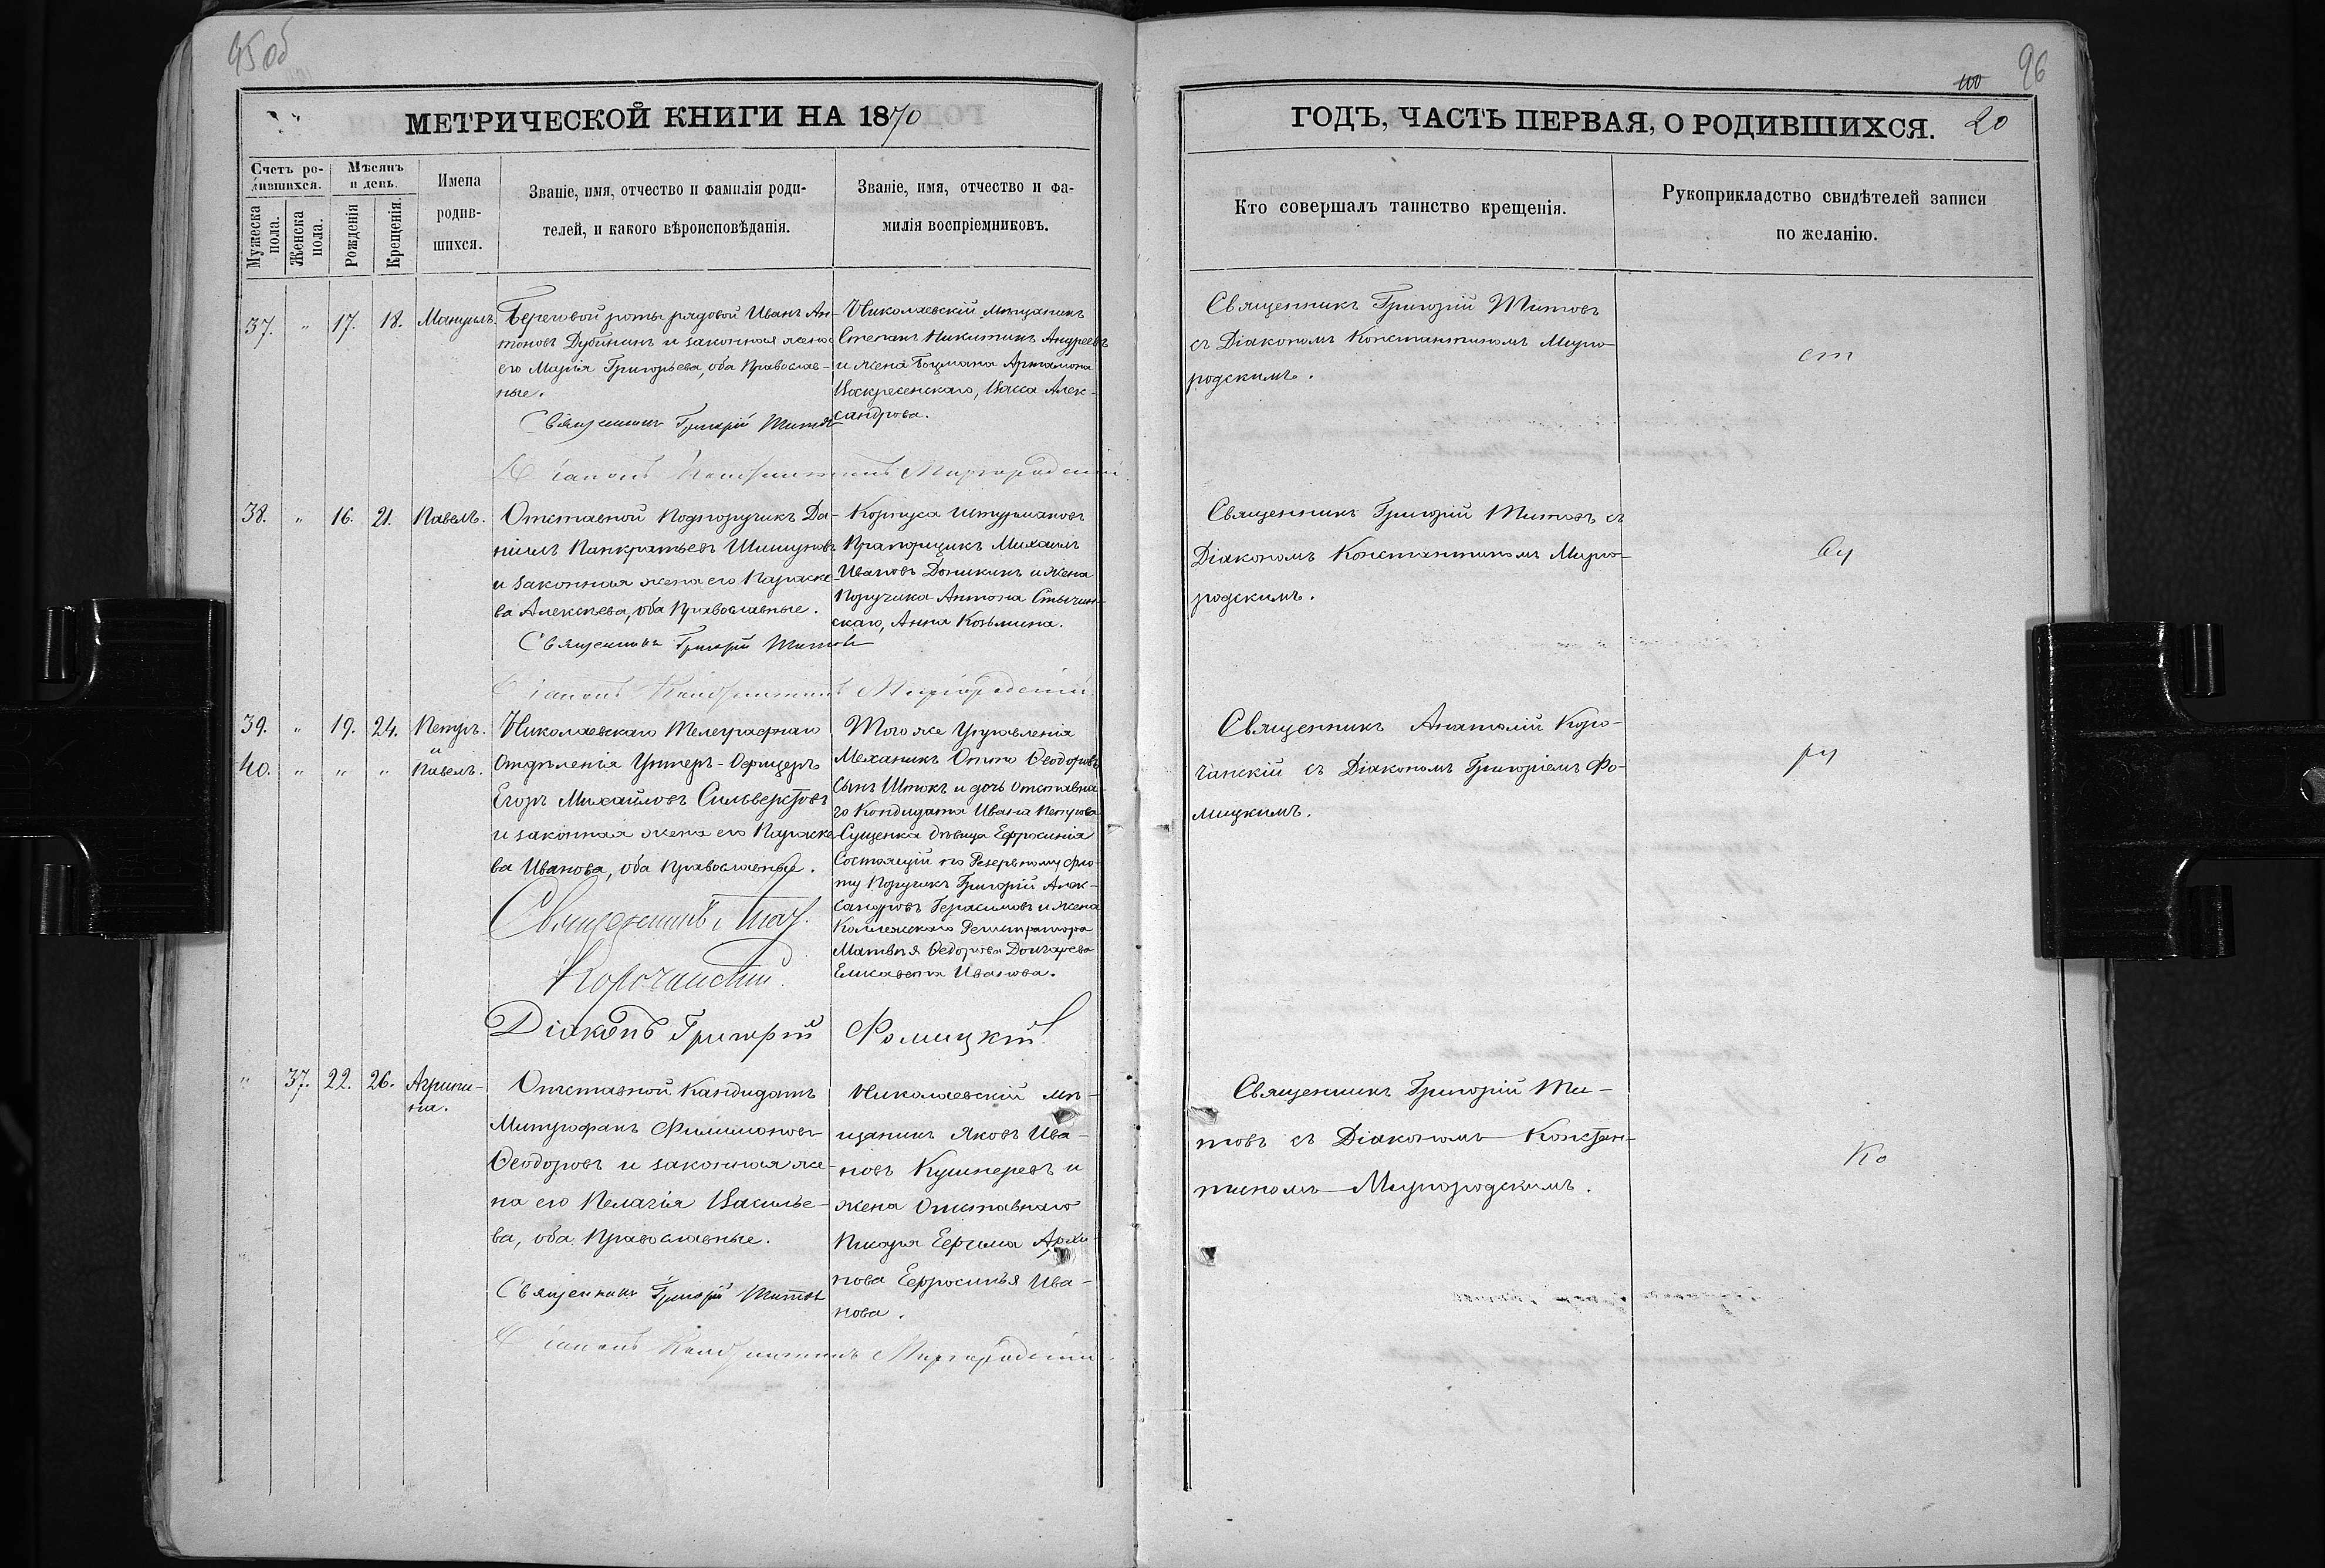 95 об
96
100
МЕТРИЧЕСКОЙ КНИГИ НА 1870
ГОДЪ, ЧАСТЬ ПЕРВАЯ, О РОДИВШИХСЯ. 20
Счетъ ро-
дившихся.
Мужеска пола.
Женска пола.
Мѣсяцъ
и день.
Рожденія
Крещенія.
Имена
родив-
шихся.
Званіе, имя, отчество и фамилія роди-
телей, и какого вѣроисповѣданія.
Званіе, имя, отчество и фа-
милія воспріемниковъ.
Кто совершалъ таинство крещенія.
Рукоприкладство свидѣтелей записи
по желанію.
37. " 17. 18. Мануилъ.
Береговой роты рядовой Иванъ Ан-
тоновъ Дубининъ и законная жена
его Марія Григорьева, оба Православ-
ные.
Священникъ Григорій Титовъ
Діаконъ Константинъ Миргородскій
Николаевскій мѣщанинъ
Степанъ Никитинъ Андреевъ
и жена Боцмана Артамона
Воскресенскаго, Васса Алек-
сандрова.
Священникъ Григорій Титовъ
съ Діакономъ Константиномъ Мирго-
родскимъ.
ст
38. " 16. 21. Павелъ.
Отставной Подпоручикъ Да-
ніилъ Панкратьевъ Шишуновъ
и законная жена его Параске-
ва Алексѣева, оба Православные.
Священникъ Григорій Титовъ
Діаконъ Константинъ Миргородскій
Корпуса Штурмановъ
Прапорщикъ Михаилъ
Ивановъ Доникинъ и жена
Поручика Антона Стычин-
скаго, Анна Козьмина.
Священникъ Григорій Титовъ съ
Діакономъ Константиномъ Мирго-
родскимъ.
ву
39. " 19. 24. Петръ.
и
40. " " " Павелъ.
Николаевскаго Телеграфнаго
Отдѣленія Унтеръ-Офицеръ
Егоръ Михайловъ Сильверстовъ
и законная жена его Параске-
ва Иванова, оба Православные.
Священникъ Анат.
Корочанскій
Діаконъ Григорій Фомицкій.
Того же Управленія
Механикъ Отто Ѳеодоровъ
сынъ Штокъ и дочь Отставна-
го Кондидата Ивана Петрова
Сущенка дѣвица Ефросинія
Состоящій по Резервному фло-
ту Поручикъ Григорій Алек-
сандровъ Герасимовъ и жена
Коллежскаго Регистратора
Матвѣя Ѳедорова Дончарева
Елисавета Иванова.
Священникъ Анатолій Коро-
чанскій съ Діакономъ Григоріемъ Фо-
мицкимъ.
ру
" 37. 22. 26. Агрипи-
на.
Отставной Кандидатъ
Митрофанъ Филимоновъ
Ѳеодоровъ и законная же-
на его Пелагія Василье-
ва, оба Православные.
Священникъ Григорій Титовъ
Діаконъ Константинъ Миргородскій
Николаевскій мѣ-
щанинъ Яковъ Ива-
новъ Кушнеревъ и
жена Отставнаго
Писаря Ефима Архи-
пова Ефросинья Ива-
нова.
Священникъ Григорій Ти-
товъ съ Діакономъ Констан-
тиномъ Миргородскимъ.
Ко